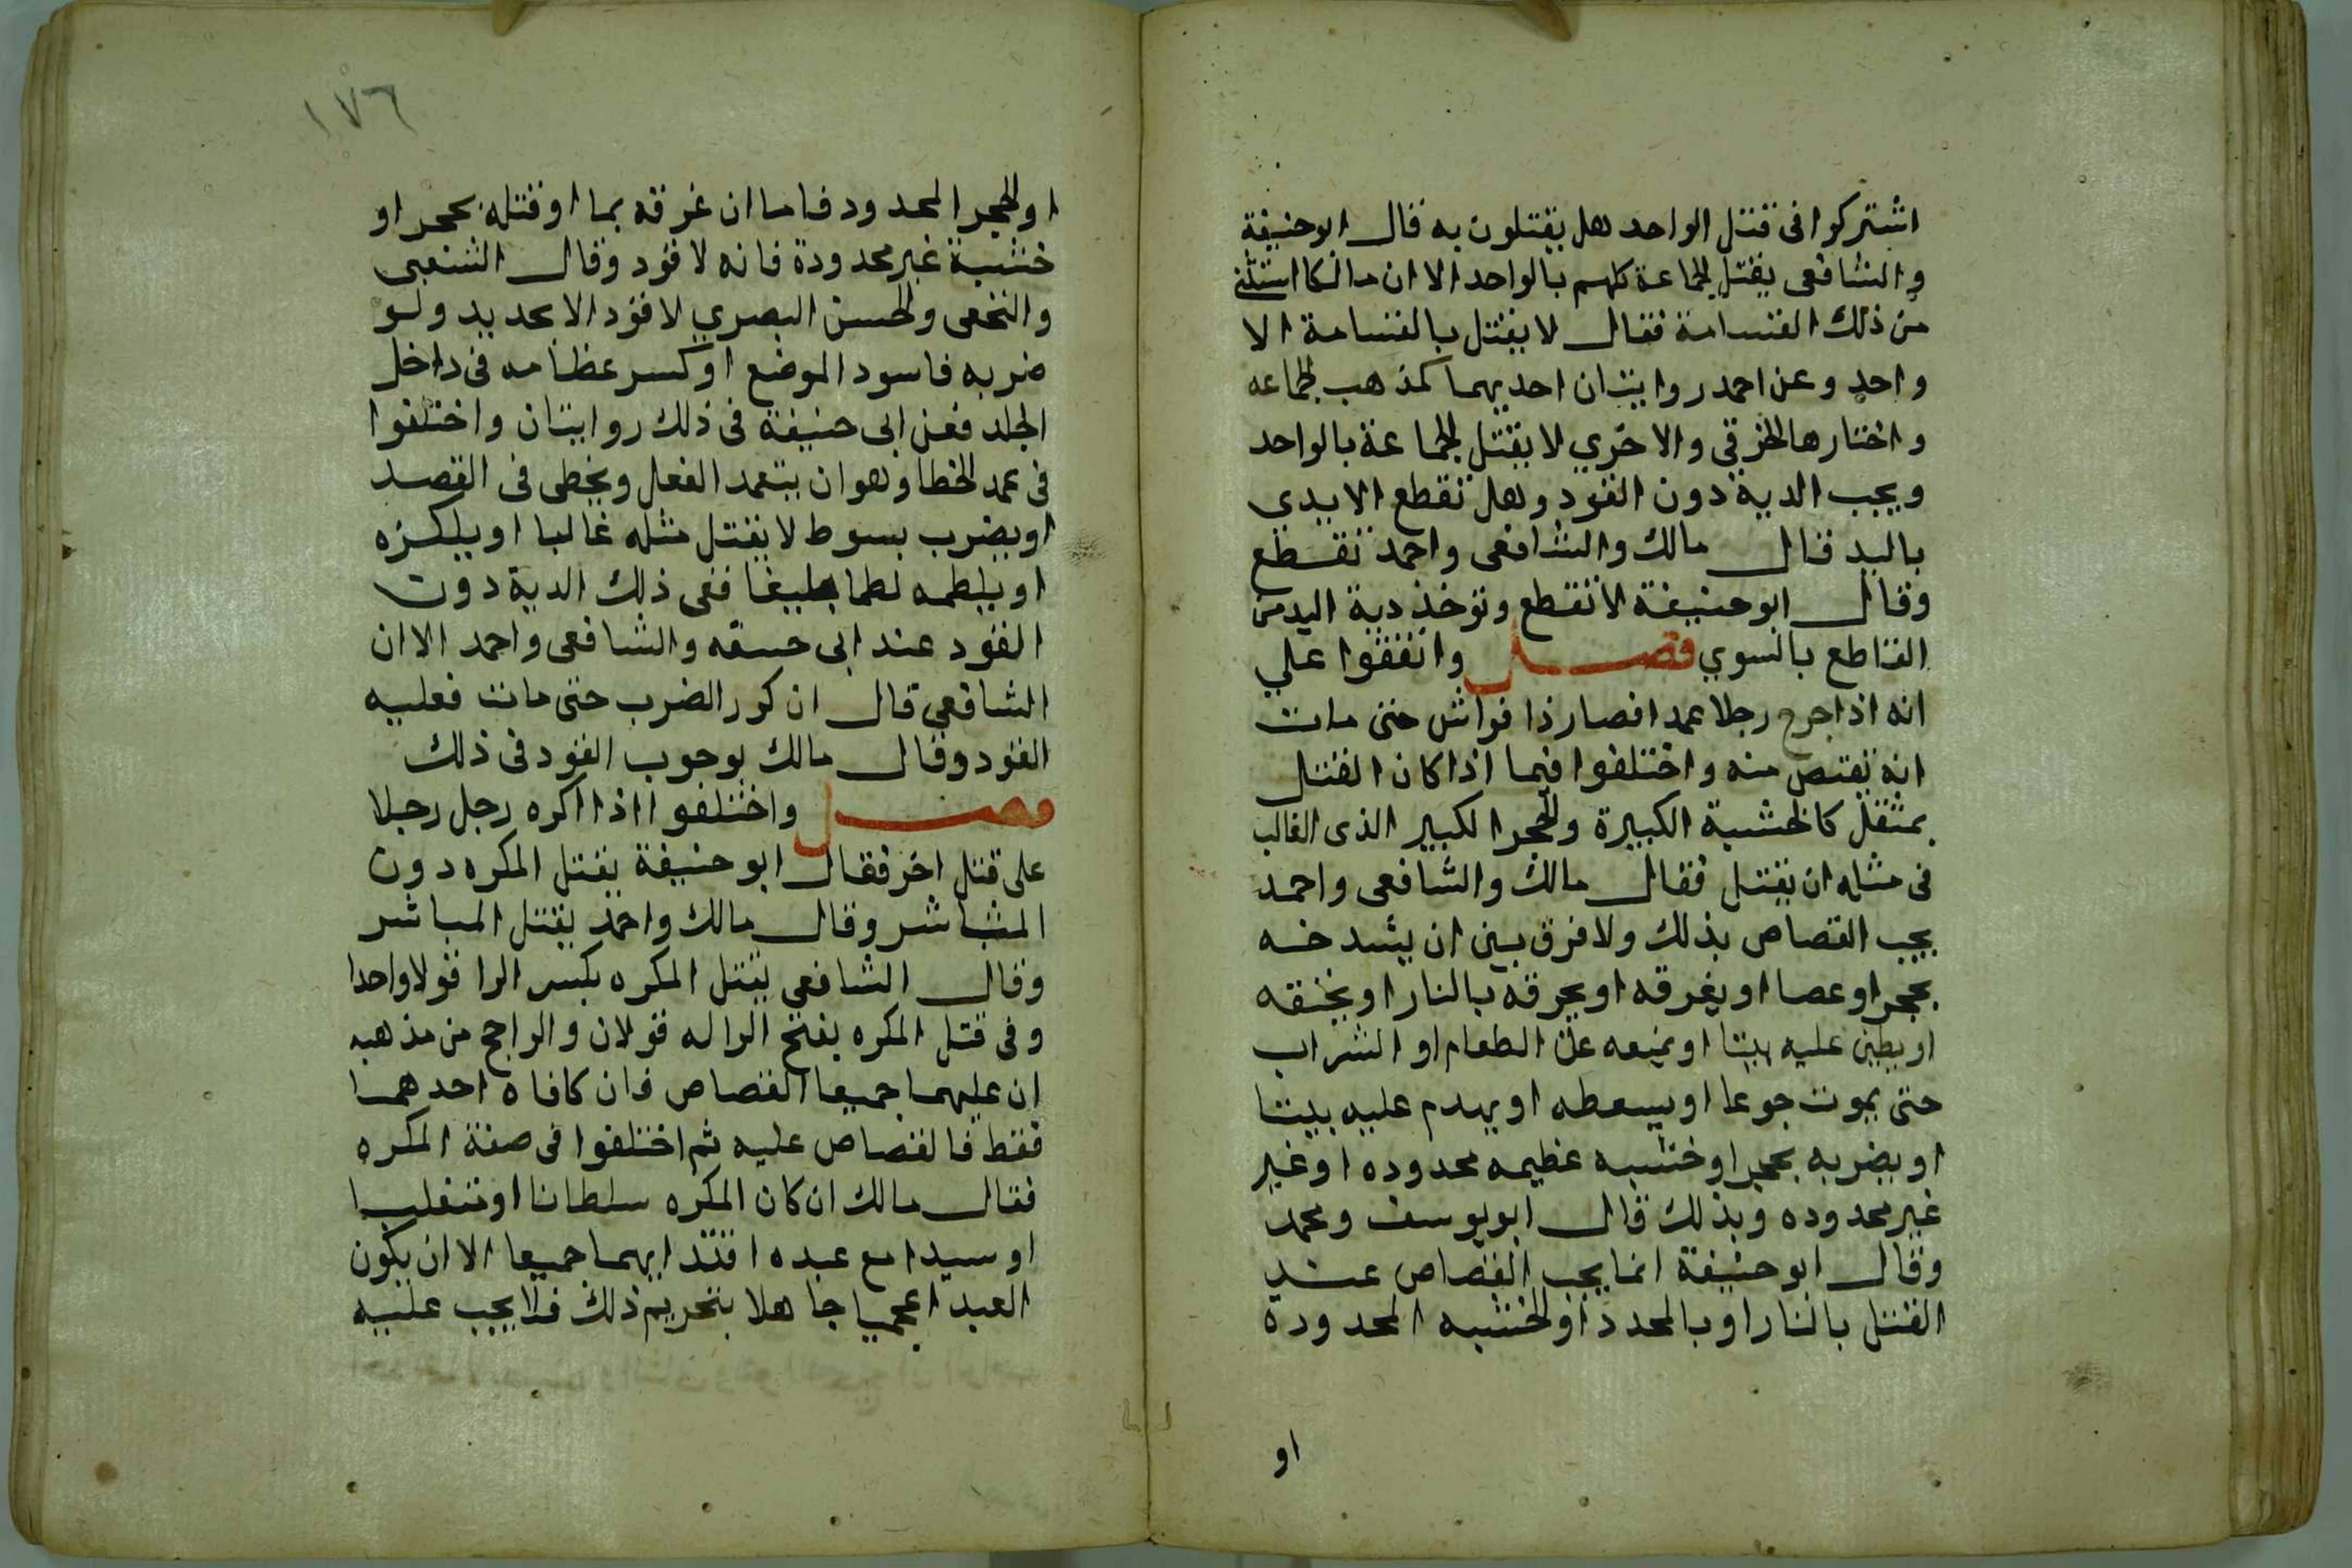 اشتركوا فى قتل الواحد هل يقتلون به قال ابو حنيفة
والشافعى يقتل الجماعة كلهم بالواحد الا ان مالكا استثنى
من ذلك القسامة فقال لا يقتل بالقسامة الا
واحد وعن احمد روايتان احديهما كمذهب الجماعه
واختارها الخرقي والاخري لا يقتل الجماعة بالواحد
ويجب الدية دون القود وهل تقطع الايدي
باليد قال مالك والشافعى واحمد تقطع
وقال ابو حنيفة لا تقطع وتوخذ دية اليد من
القاطع بالسوي فصل واتفقوا علي
انه اذا جرح رجلا عمدا فصار ذا فراش حتى مات
انه يقتص منه واختلفوا فيما اذا كان القتل
بمثقل كالخشبة الكبيرة والحجر الكبير الذى الغالب
فى مثله ان يقتل فقال مالك والشافعى واحمد
يجب القصاص بذلك ولا فرق بين ان يشدخه
بحجر او عصا او يغرقه او يحرقه بالنار او يخنقه
او يطين عليه بيتا او يمنعه عن الطعام او الشراب
حتى يموت جوعا او يسعطه او يهدم عليه بيتا
او يضربه بحجر او خشبه عظيمه محدوده او غير
غير محدوده وبذلك قال ابو يوسف ومحمد
وقال ابو حنيفة انما يجب القصاص عند
القتل بالنار او بالمحدد او الخشبه المحدودة
او
١٧٦
او الحجر المحدود فاما ان غرقه بما او قتله بحجر او
خشبة غير محدودة فانه لا قود وقال الشعبى
والنخعى والحسن البصري لا قود الا بحديد ولو
ضربه فاسود الموضع او كسر عظامه فى داخل
الجلد فعن ابى حنيفة فى ذلك روايتان واختلفوا
فى عمد الخطا وهو ان يتعمد الفعل ويخطى فى القصد
او يضرب بسوط لا يقتل مثله غالبا او يلكزه
او يلطمه لطما بليغا ففى ذلك الدية دون
القود عند ابى حنيفه والشافعى واحمد الا ان
الشافعي قال ان كرر الضرب حتى مات فعليه
القود وقال مالك بوجوب القود فى ذلك
فصل واختلفوا اذا اكره رجل رجلا
على قتل اخر فقال ابو حنيفة يقتل المكره دون
المباشر وقال مالك واحمد يقتل المباشر
وقال الشافعي يقتل المكره بكسر الرا قولا واحدا
وفى قتل المكره بفتح الرا له قولان والراجح من مذهبه
ان عليهما جميعا القصاص فان كافاه احدهما
فقط فالقصاص عليه ثم اختلفوا فى صفة المكره
فقال مالك ان كان المكره سلطانا او متغلبا
او سيدا مع عبده اقتد ايهما جميعا الا ان يكون
العبد اعجميا جاهلا بتحريم ذلك فلا يجب عليه